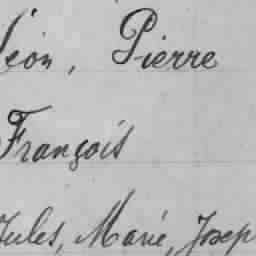 Léon, Pierre
François
Jules, Marie, Josep